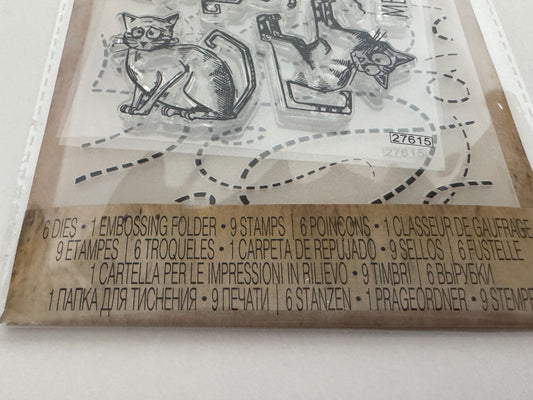 ME
27615
27615
6 DIES • 1 EMBOSSING FOLDER • 9 STAMPS | 6 POINÇONS • 1 CLASSEUR DE GAUFRAGE
9 ÉTAPES | 6 TROQUELES • 1 CARPETA DE REPUJADO • 9 SELLOS | 6 FUSTELLE
1 CARTELLA PER LE IMPRESSIONI IN RILIEVO • 9 TIMBRI | 6 ВЫРУБКИ
1 ПАПКА ДЛЯ ТИСНЕНИЯ • 9 ПЕЧАТИ | 6 STANZEN • 1 PRÄGEORDNER • 9 STEMPE